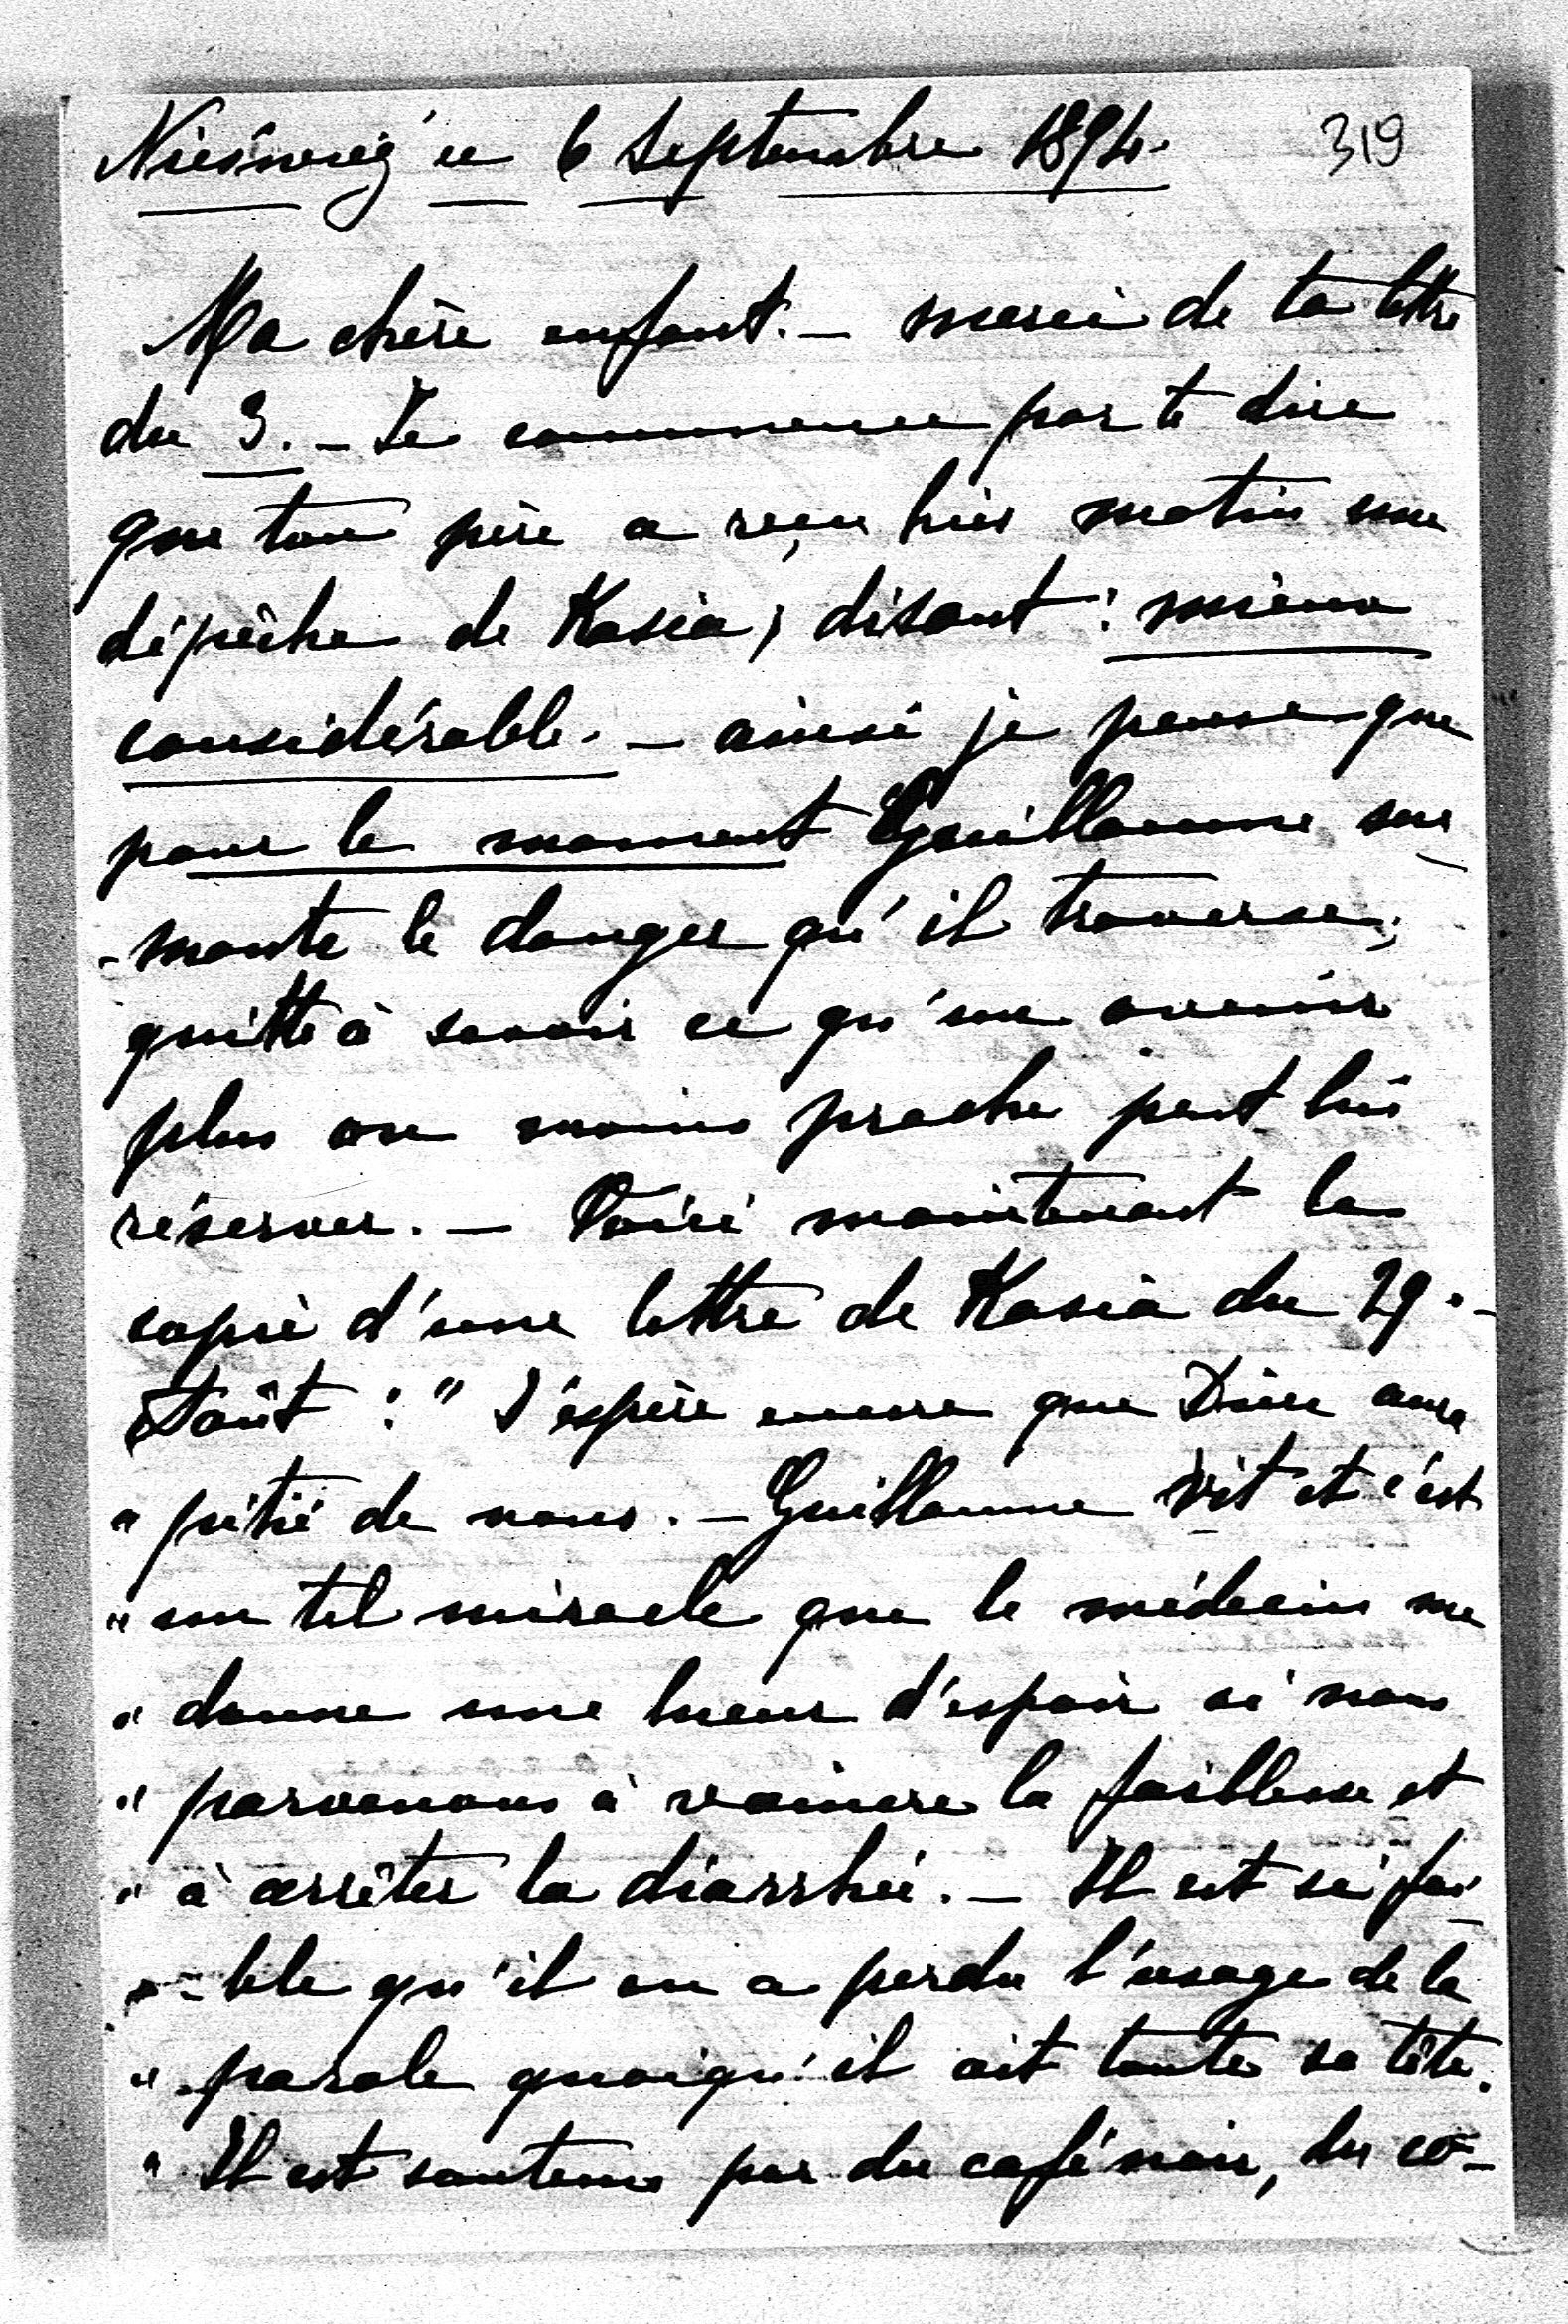 Nieśwież ce 6 Septembre 1894.
319
Ma chère enfant. — merci de ta lettre
du 3. — Je commence par te dire
que ton père a reçu hier matin une
dépêche de Kasia, disant : mieux
considérable. — ainsi je pense que
pour le moment Guillaume sur
-monte le danger qu'il traverse,
quitte à savoir ce qu'un avenir
plus ou moins proche peut lui
réserver. — Voici maintenant la
copie d'une lettre de Kasia du 29. —
Août : " J'espère encore que Dieu aura
" pitié de nous. — Guillaume vit et c'est
" un tel miracle que le médecin me
" donne une lueur d'espoir si nous
" parvenons à vaincre la faiblesse et
" à arrêter la diarrhée. — Il est si fai
" - ble qu'il en a perdu l'usage de la
" parole quoiqu'il ait toute sa tête.
" Il est soutenu par du café noir, du co-